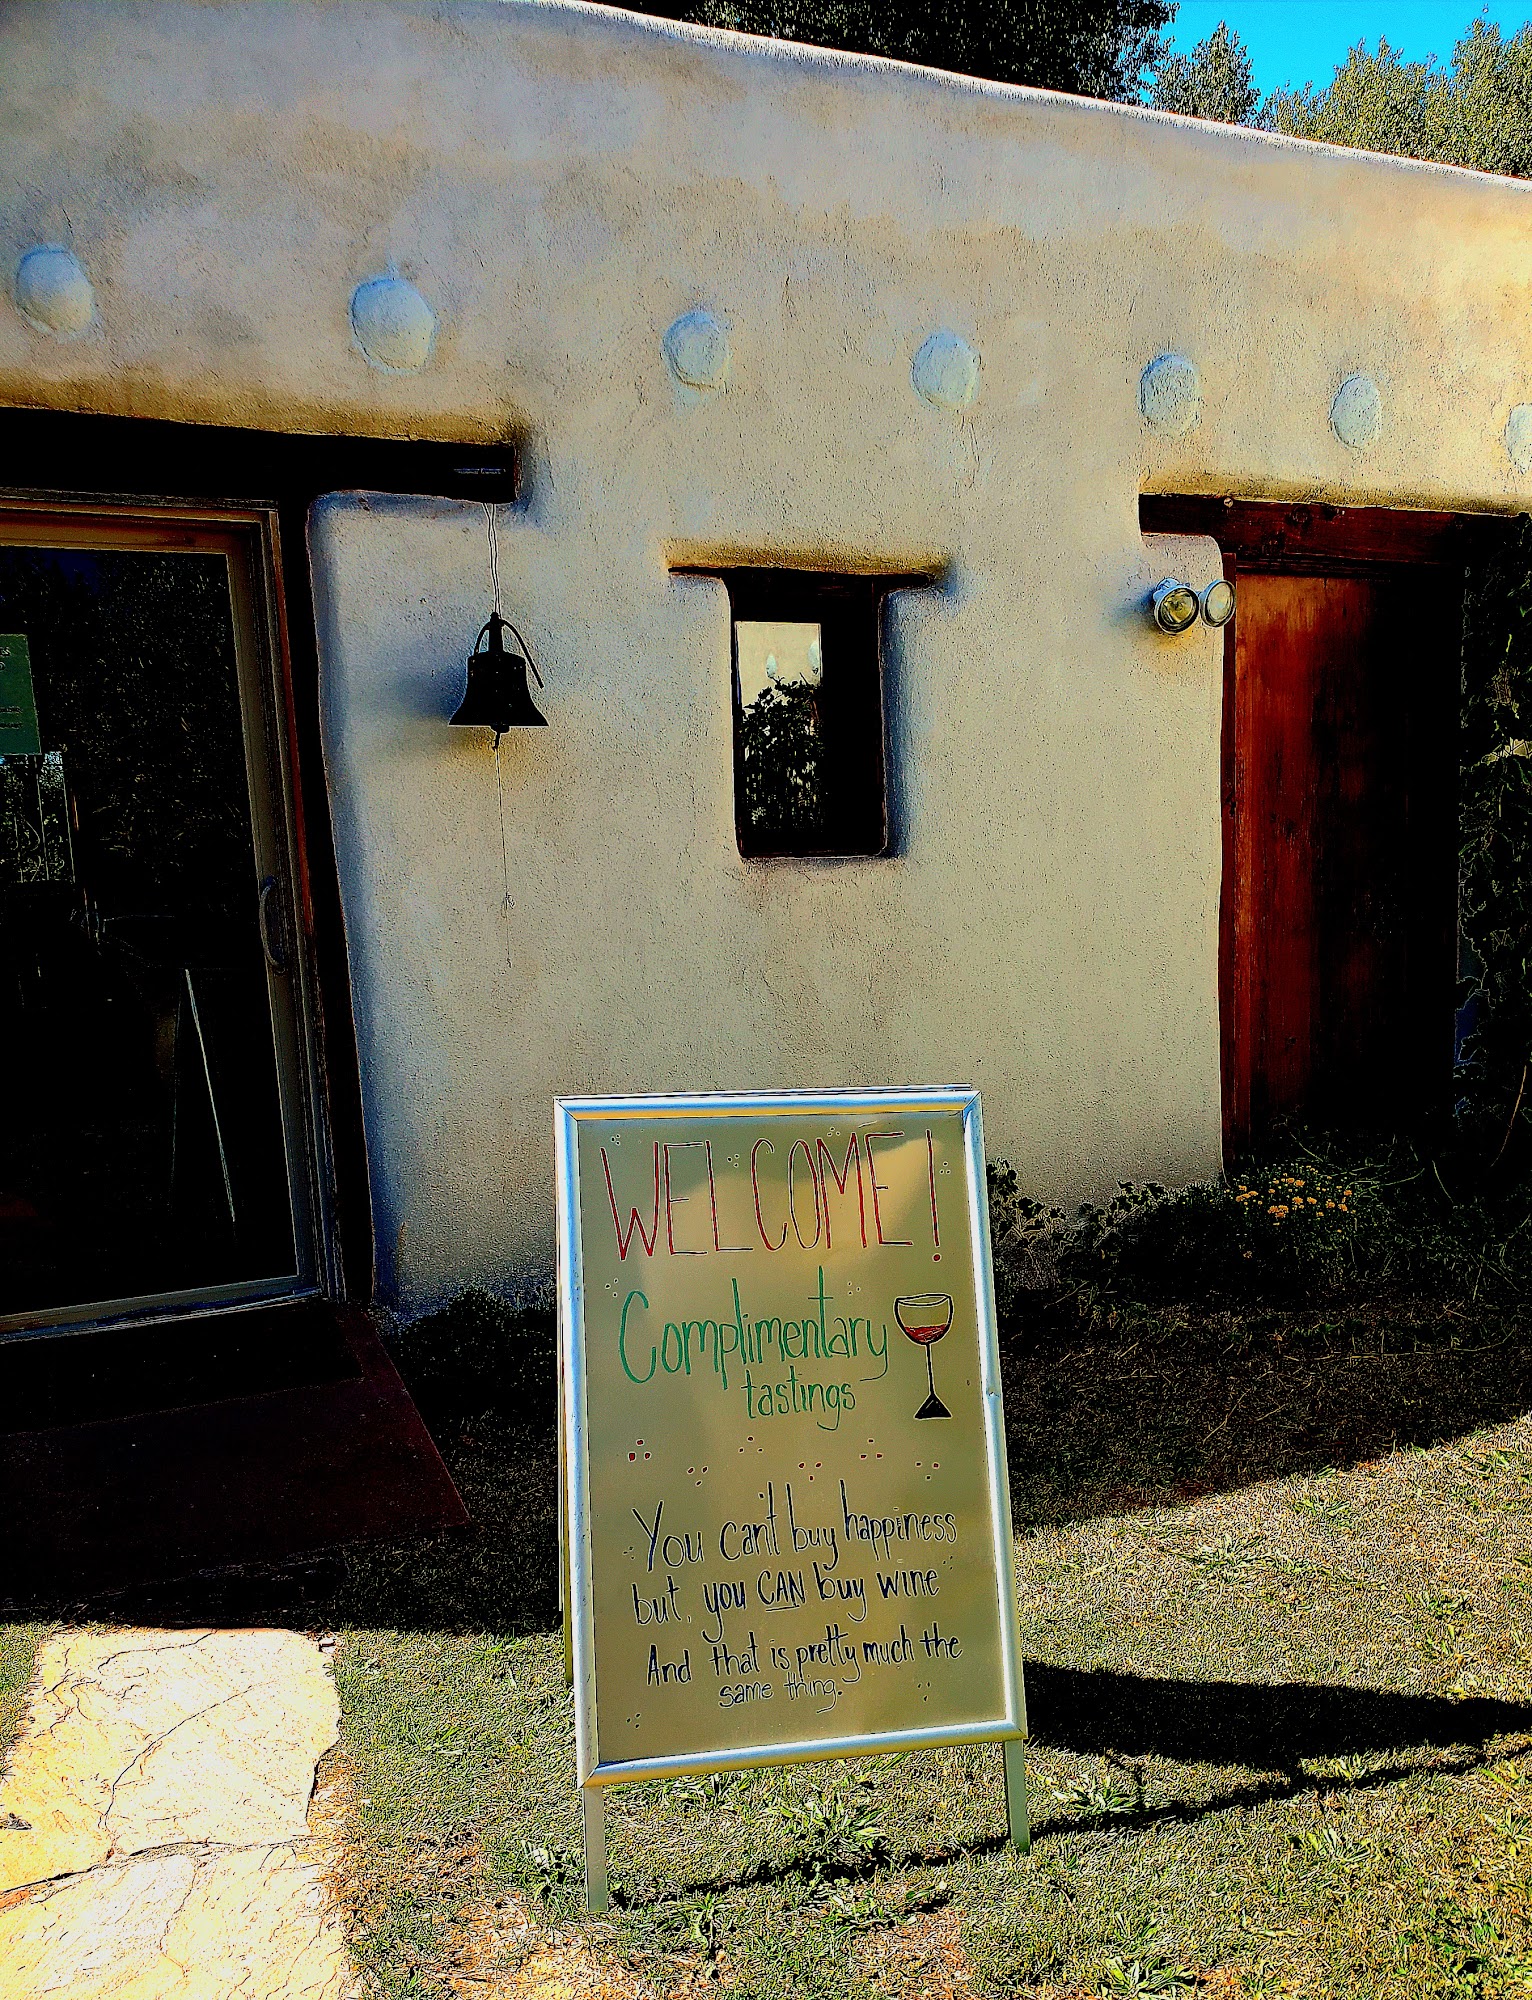 WELCOME!
Complimentary
tastings
You can't buy happiness
but, you CAN buy wine
And that is pretty much the
same thing.